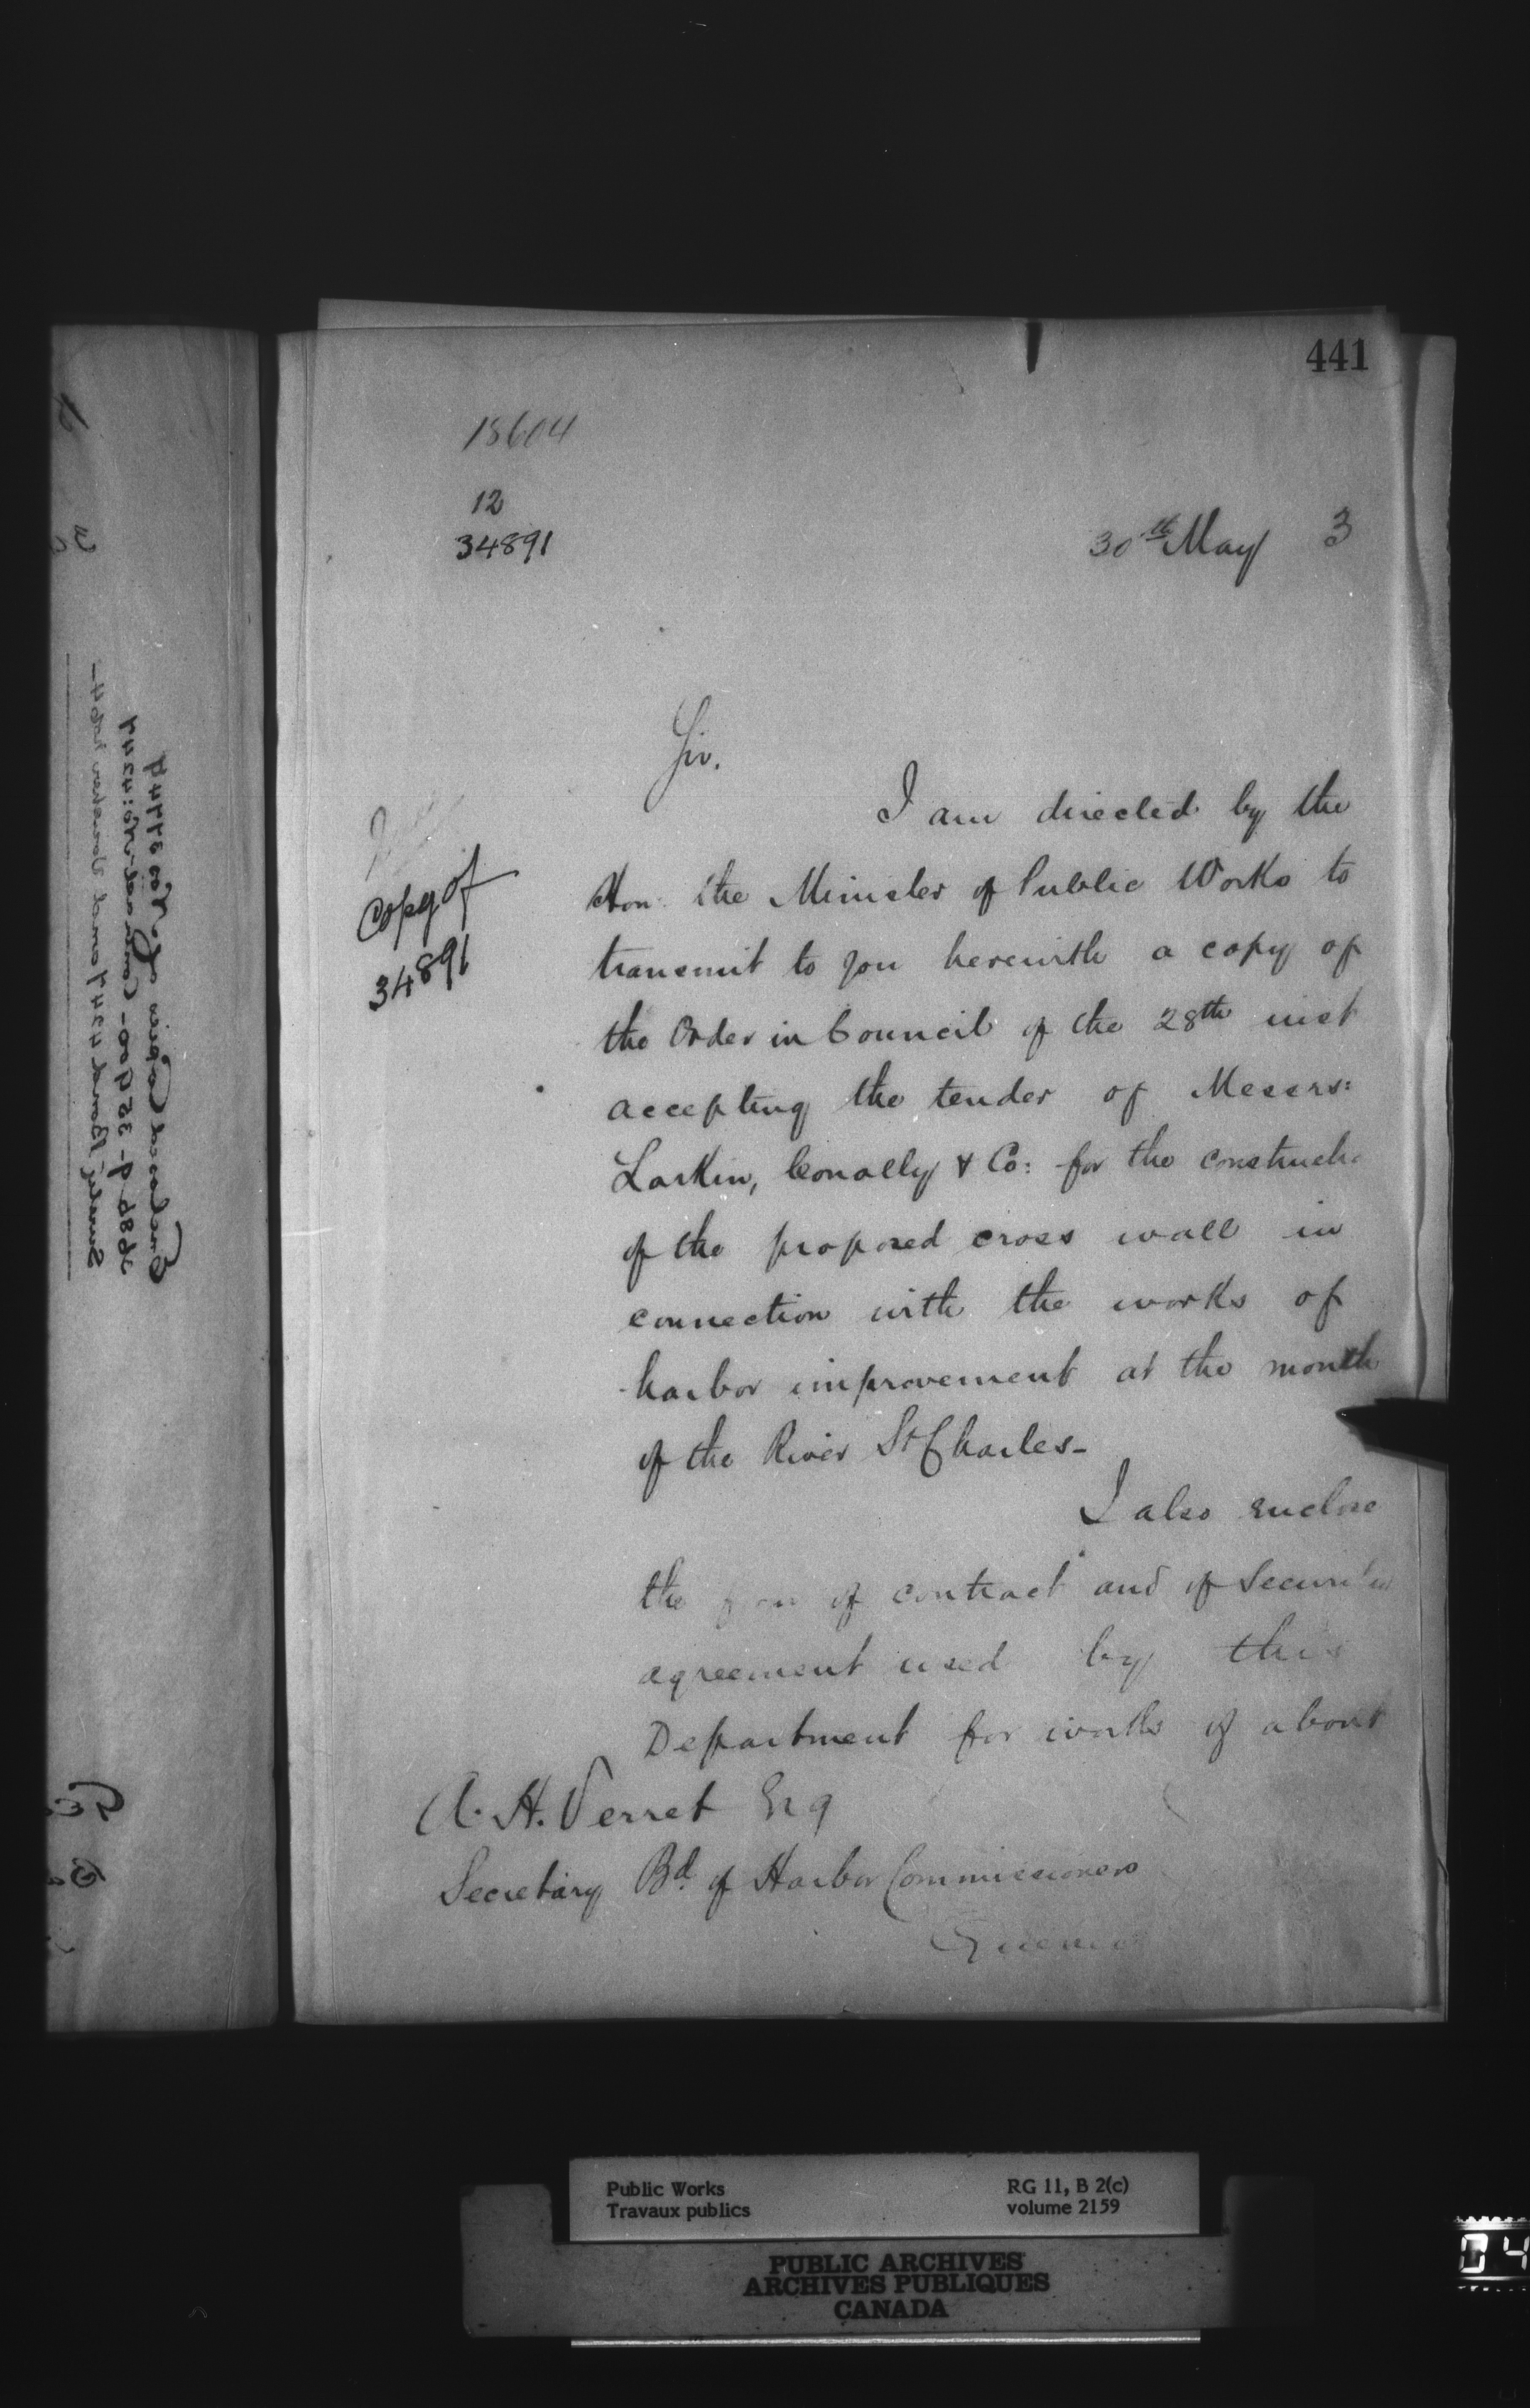 441
18604
12
34891
30th May 3
Sir.
I am directed by the
Hon: the Minister of Public Works to
transmit to you herewith a copy of
the Order in Council of the 28th inst
accepting the tender of Messrs:
Larkin, Conolly & Co: for the constructio
of the proposed cross wall in
connection with the works of
harbor improvement at the mouth
of the River St Charles-
I also enclose
the form of contract and of Securities
agreement used by this
Department for works of about
Copy of
34891
A. H. Verret Esq
Secretary Bd. of Harbor Commissioners
Enclosed Copies of Nos
Public Works
Travaux publics
RG 11, B 2(c)
volume 2159
PUBLIC ARCHIVES
ARCHIVES PUBLIQUES
CANADA
04